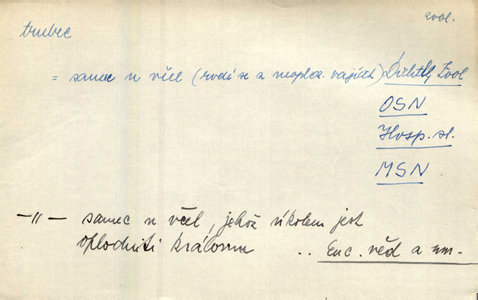 zool.
trubec
= samec u včel (rodí se z neoplozn. vajíček) 
OSN
Hosp. sl.
MSN
—"— samec u včel, jehož úkolem jest
oplodniti královnu .. Enc. věd a um.